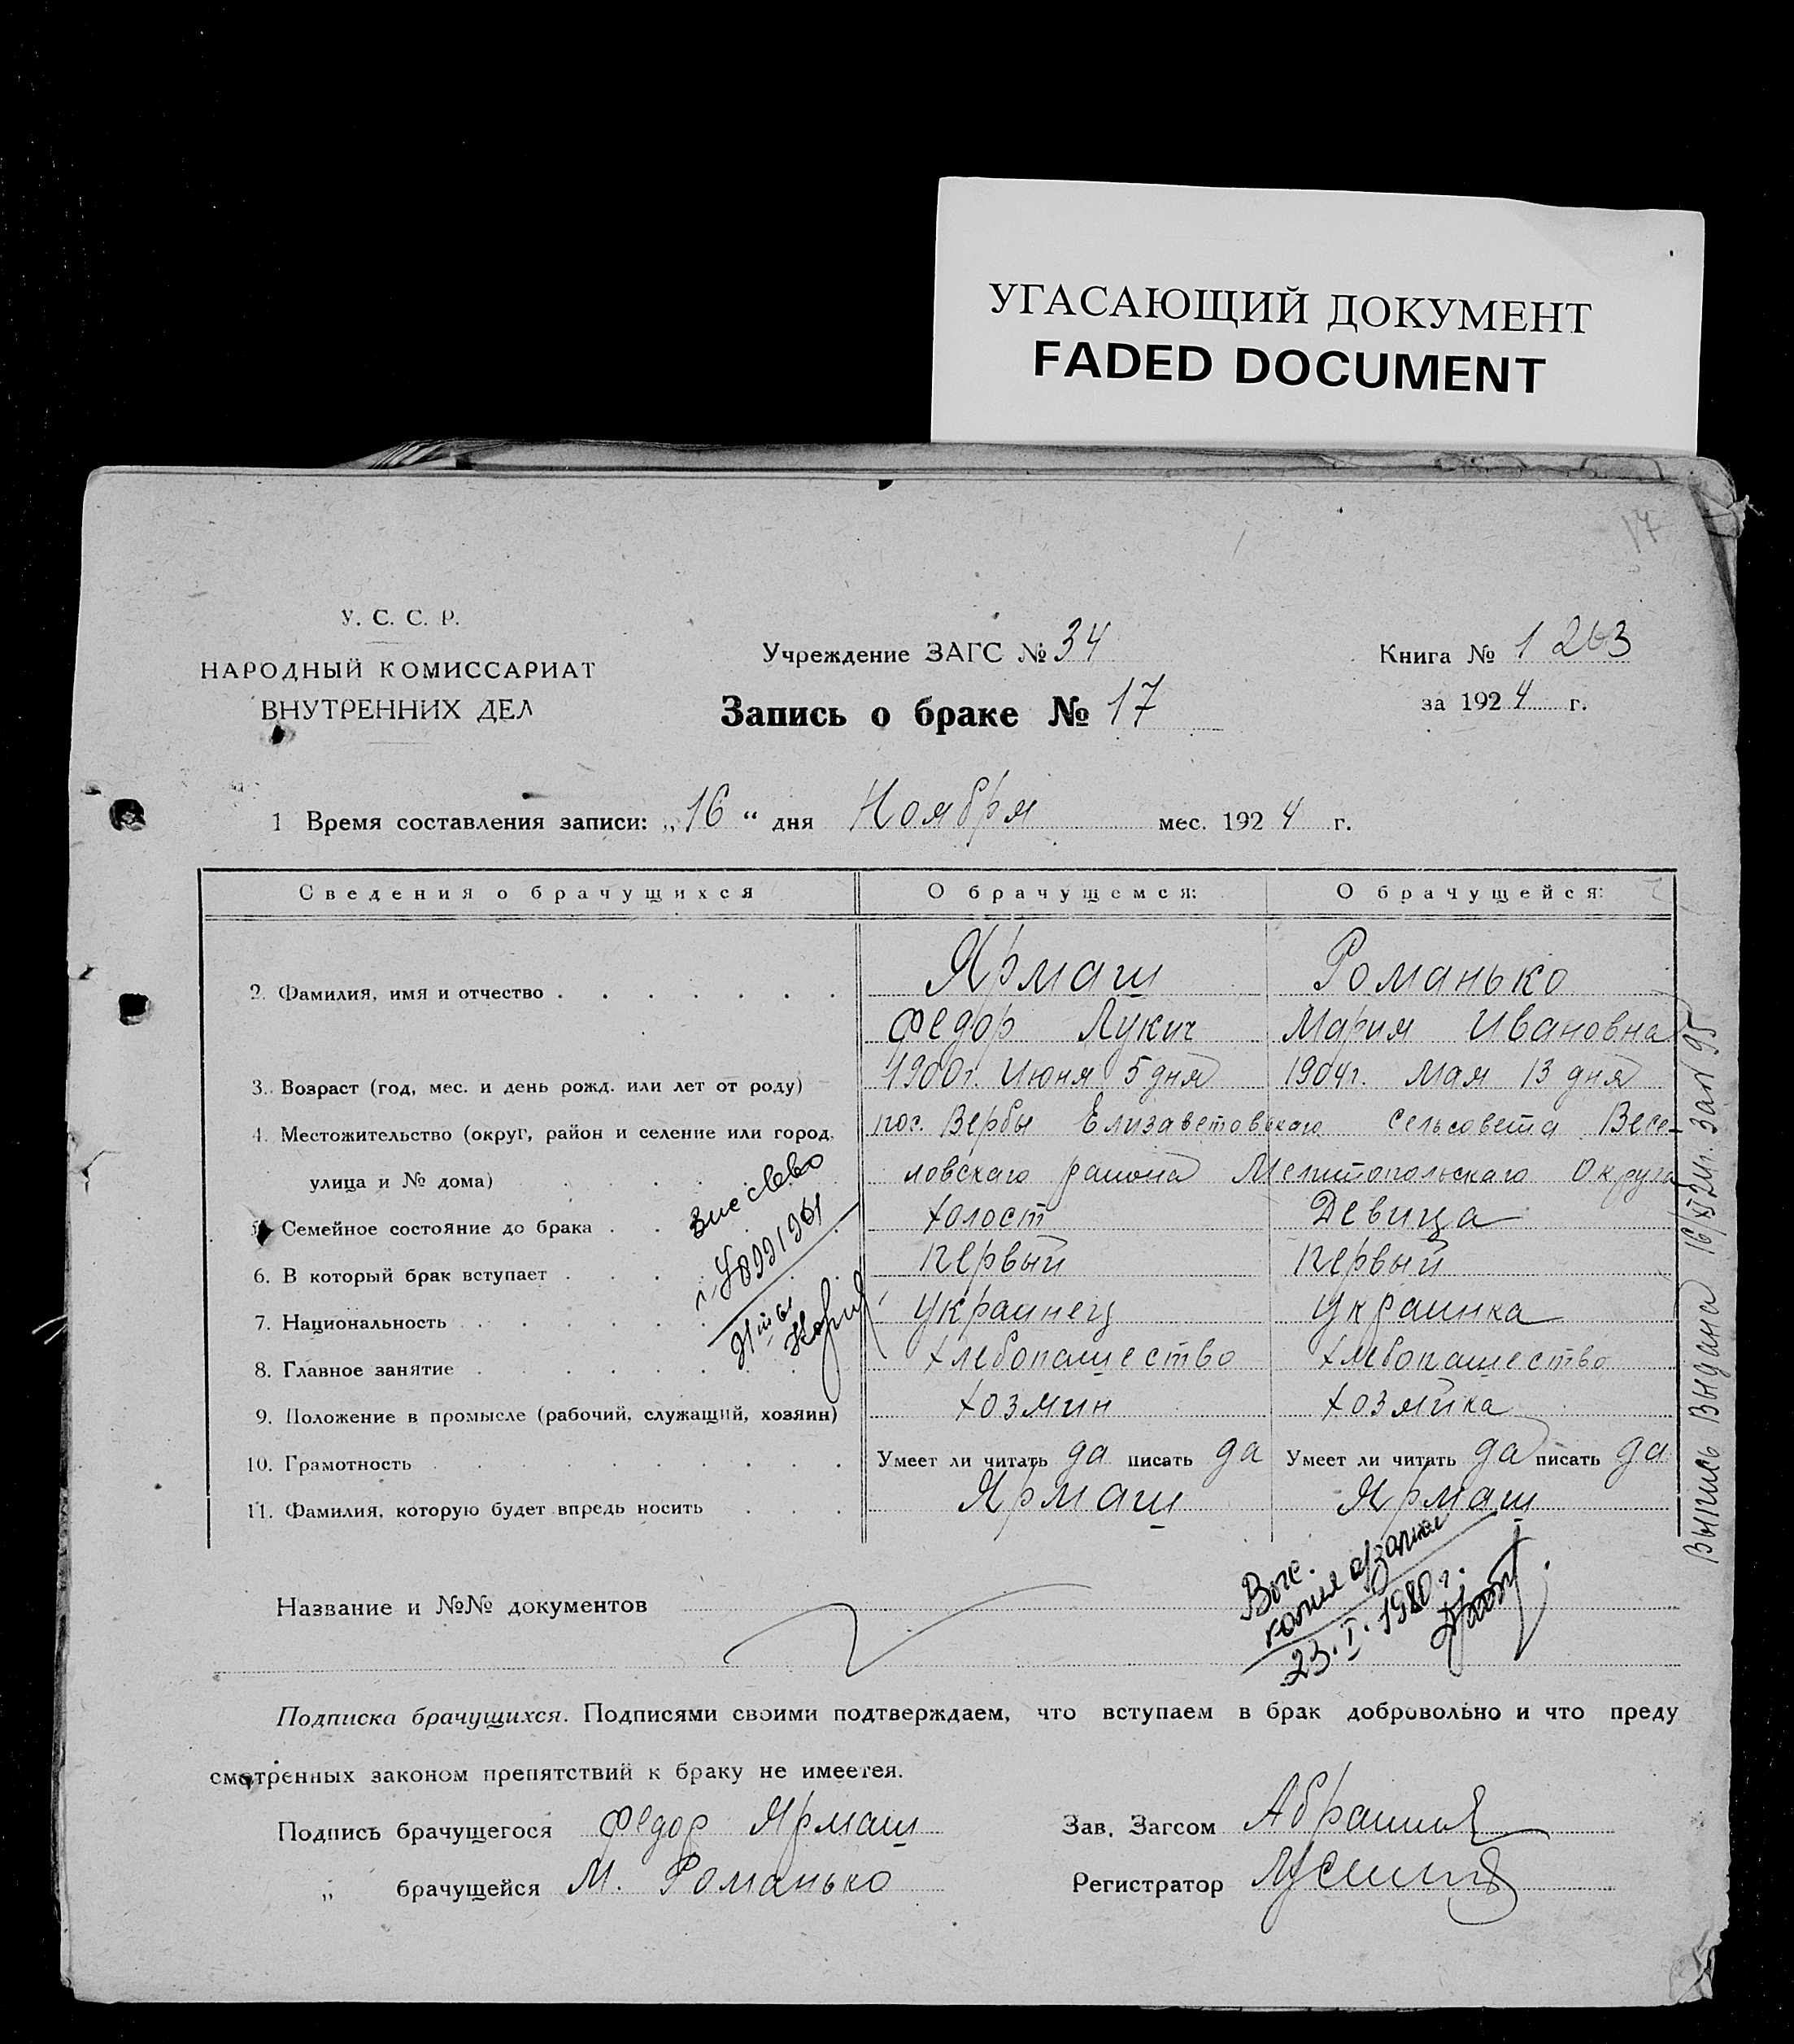 УГАСАЮЩИЙ ДОКУМЕНТ
FADED DOCUMENT
17
У. С. С. Р.
НАРОДНЫЙ КОМИССАРИАТ
ВНУТРЕННИХ ДЕЛ
Учреждение ЗАГС № 34
Запись о браке № 17
Книга № 1 263
за 1924 г.
1 Время составления записи: „16“ дня Ноября мес. 1924 г.
Сведения о брачущихся О брачущемся: О брачущейся:
2. Фамилия, имя и отчество Ярмаш Романько
Федор Лукич Мария Ивановна
3. Возраст (год, мес. и день рожд. или лет от роду) 1900г. Июня 5 дня 1904г. Мая 13 дня
4. Местожительство (округ, район и селение или город, пос. Вербы Елизаветовскаго сельсовета Весе-
улица и № дома) ловскаго района Мелитопольскаго Округа
5. Семейное состояние до брака холост Девица
6. В который брак вступает первый первый
7. Национальность Украинец Украинка
8. Главное занятие хлебопашество хлебопашество
9. Положение в промысле (рабочий, служащий, хозяин) хозяин хозяйка
10. Грамотность Умеет ли читать да писать да Умеет ли читать да писать да
11. Фамилия, которую будет впредь носить Ярмаш Ярмаш
Выпись выдана 16/XI 24г. за № 95
Название и №№ документов
23. I. 1980 г.
Подписка брачущихся. Подписями своими подтверждаем, что вступаем в брак добровольно и что преду
смотренных законом препятствий к браку не имеется.
Подпись брачущегося Федор Ярмаш
Зав. Загсом
„ брачущейся М. Романько
Регистратор